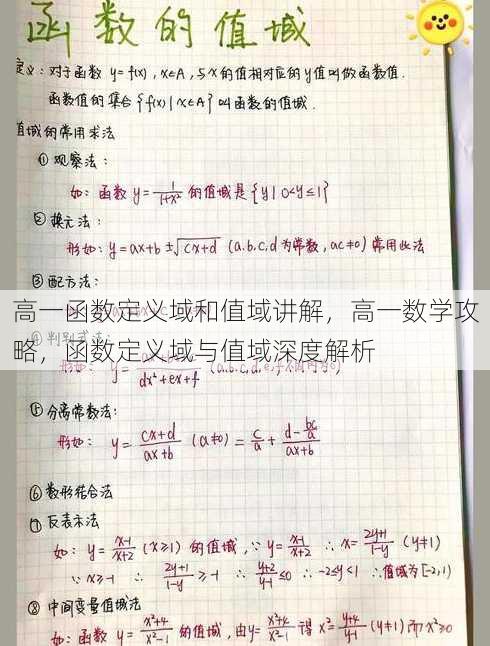 函数的值域
定义：对于函数 y=f(x), x∈A, 与x的值相对应的y值叫做函数值.
函数值的集合{f(x)|x∈A}叫函数的值域.
值域的常用求法
①观察法：
如：函数 y=1/(1+x²) 的值域是{y|0<y≤1}
②换元法：
形如：y=ax+b±√(cx+d) (a.b.c.d为常数, ac≠0) 常用此法
③配方法：
高一函数定义域和值域讲解，高一数学攻
略，函数定义域与值域深度解析
④判别式法：
形如：y= /(dx²+ex+f)
⑤分离常数法：
形如：y=(cx+d)/(ax+b) (a≠0) = c/a + (d-bc/a)/(ax+b)
⑥数形结合法
⑦反表示法
如：y=(x-1)/(x+2) (x≥1) 的值域, ∵ y=(x-1)/(x+2) ∴ x=(2y+1)/(1-y) (y≠1)
∵ x≥-1 ∴ (2y+1)/(1-y)≥-1 ∴ (y+2)/(y-1)≤0 ∴ -2≤y<1 ∴值域为[-2,1)
⑧中间变量值域法
如：函数 y=(x²+4)/(x²-1) 的值域, 由y=(x²+4)/(x²-1) 得 x²=(y+4)/(y-1) (y≠1) 而x²≥0